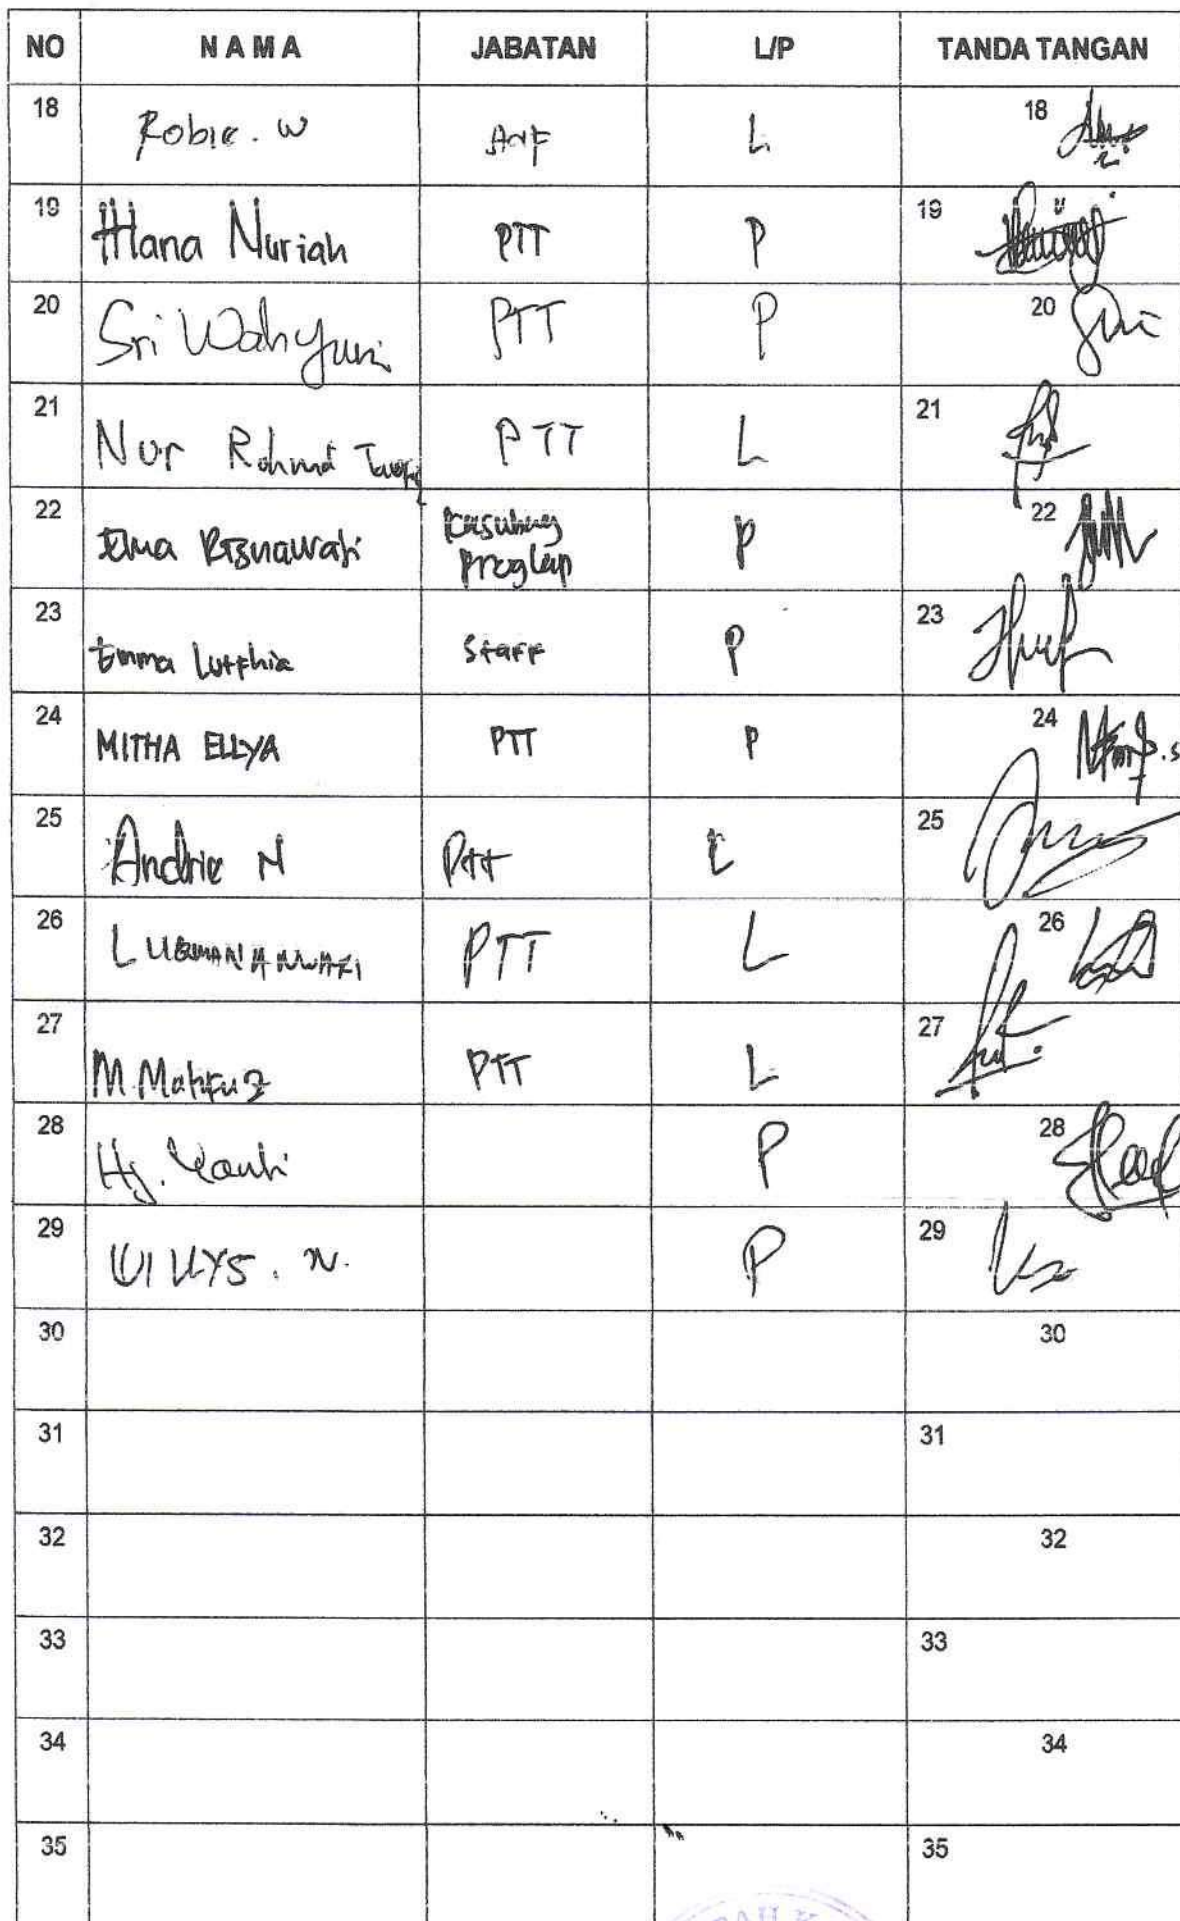 NO NAMA JABATAN L/P TANDA TANGAN
18 Robie. W L 18
19 Hana Nuriah PTT P 19
20 Sri Wahyuni PTT P 20
21 Nur Rohmat PTT L 21
22 Risnawati Kasubag P 22
Proglap
23 Emma Lutfhia Staff P 23
24 MITHA ELLYA PTT P 24
25 Andrie N Ptt L 25
26 LUQMAN ANWARI PTT L 26
27 M. Mahfuz PTT L 27
28 Hj. Yanti P 28
29 N. P 29
30 30
31 31
32 32
33 33
34 34
35 35